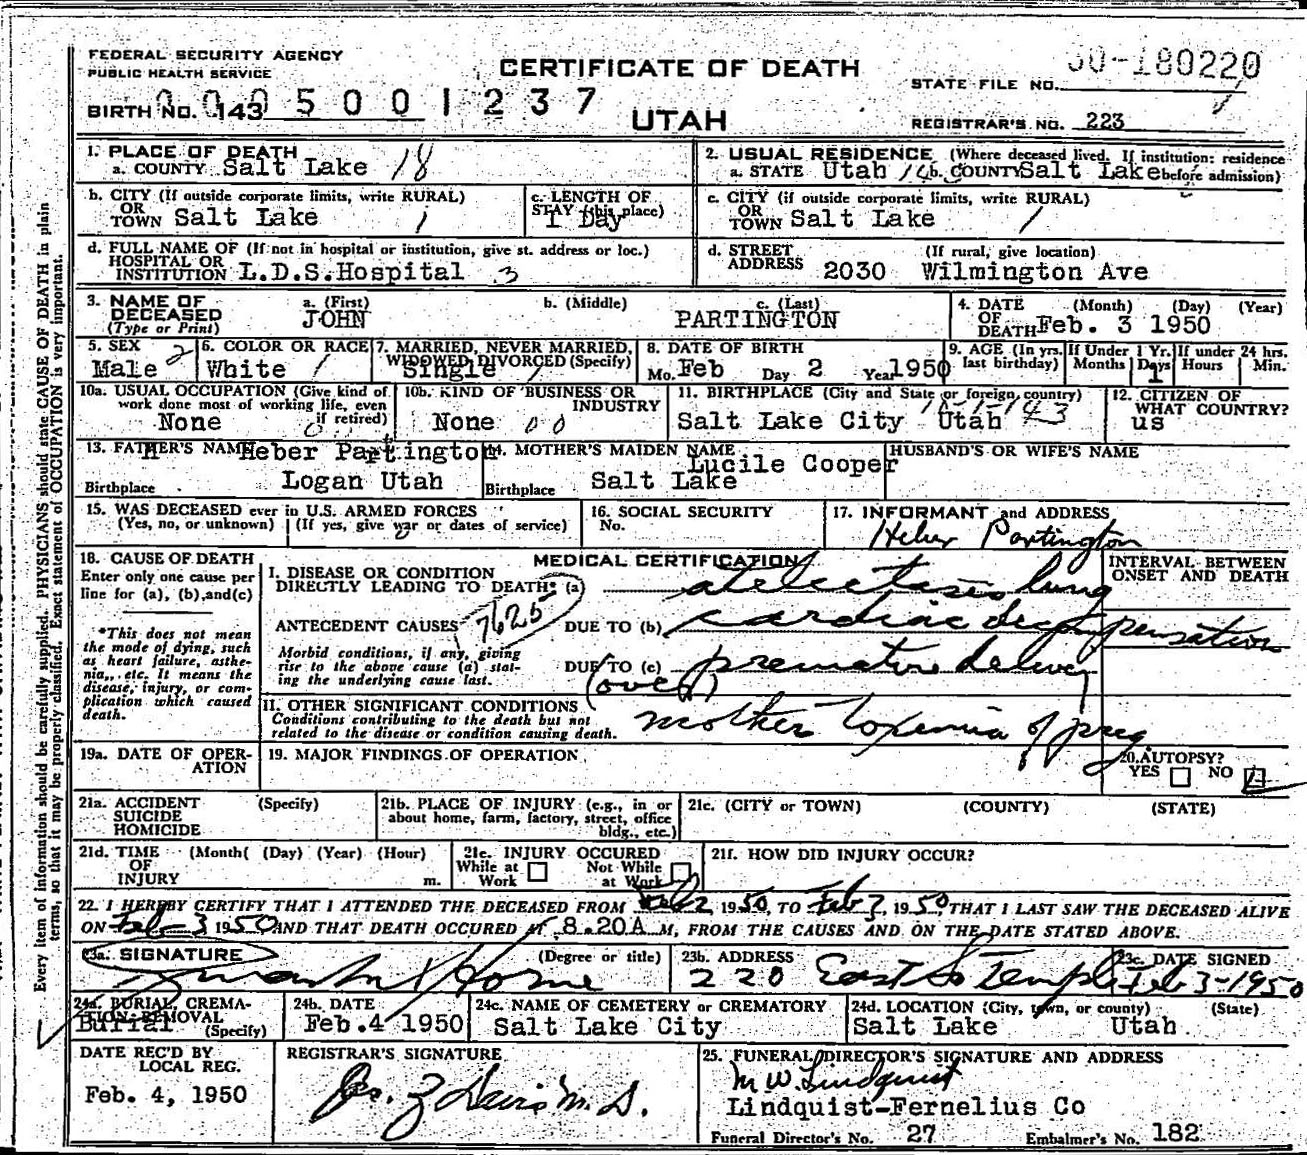 FEDERAL SECURITY AGENCY
PUBLIC HEALTH SERVICE
CERTIFICATE OF DEATH
UTAH
STATE FILE NO. 50-180220
BIRTH NO. 143 5001237
REGISTRAR'S NO. 223
Every item of information should be carefully supplied. PHYSICIANS should state CAUSE OF DEATH in plain
terms, so that it may be properly classified. Exact statement of OCCUPATION is very important.
1. PLACE OF DEATH
a. COUNTY Salt Lake 18
2. USUAL RESIDENCE (Where deceased lived. If institution: residence
a. STATE Utah b. COUNTY Salt Lake before admission)
b. CITY (If outside corporate limits, write RURAL)
OR
TOWN Salt Lake 1
c. LENGTH OF
STAY (this place)
1 Day
c. CITY (If outside corporate limits, write RURAL)
OR
TOWN Salt Lake 1
d. FULL NAME OF (If not in hospital or institution, give st. address or loc.)
HOSPITAL OR
INSTITUTION L.D.S.Hospital 3
d. STREET (If rural, give location)
ADDRESS 2030 Wilmington Ave
3. NAME OF
DECEASED
(Type or Print)
a. (First) b. (Middle) c. (Last)
JOHN PARTINGTON
4. DATE (Month) (Day) (Year)
OF
DEATH Feb. 3 1950
5. SEX 2
Male
6. COLOR OR RACE
White 1
7. MARRIED, NEVER MARRIED,
WIDOWED DIVORCED (Specify)
Single 1
8. DATE OF BIRTH
Mo. Feb Day 2 Year 1950
9. AGE (In yrs.
last birthday)
If Under 1 Yr.
Months Days
1
If under 24 hrs.
Hours Min.
10a. USUAL OCCUPATION (Give kind of
work done most of working life, even
if retired)
None
10b. KIND OF BUSINESS OR
INDUSTRY
None 00
11. BIRTHPLACE (City and State or foreign country)
Salt Lake City Utah
12. CITIZEN OF
WHAT COUNTRY?
us
13. FATHER'S NAME Heber Partington
Birthplace Logan Utah
14. MOTHER'S MAIDEN NAME
Lucile Cooper
Birthplace Salt Lake
HUSBAND'S OR WIFE'S NAME
15. WAS DECEASED ever in U.S. ARMED FORCES
(Yes, no, or unknown) (If yes, give war or dates of service)
16. SOCIAL SECURITY
No.
17. INFORMANT and ADDRESS
Heber Partington
18. CAUSE OF DEATH
Enter only one cause per
line for (a), (b), and (c)
*This does not mean
the mode of dying, such
as heart failure, asthe-
nia, etc. It means the
disease, injury, or com-
plication which caused
death.
MEDICAL CERTIFICATION
INTERVAL BETWEEN
ONSET AND DEATH
I. DISEASE OR CONDITION
DIRECTLY LEADING TO DEATH* (a) atelectasis lung
7625
ANTECEDENT CAUSES DUE TO (b) cardiac decompensation
Morbid conditions, if any, giving
rise to the above cause (a) stat-
ing the underlying cause last.
DUE TO (c) premature delivery
(over)
II. OTHER SIGNIFICANT CONDITIONS
Conditions contributing to the death but not
related to the disease or condition causing death.
mother toxemia of preg.
19a. DATE OF OPER-
ATION
19. MAJOR FINDINGS OF OPERATION
20. AUTOPSY?
YES NO
21a. ACCIDENT (Specify)
SUICIDE
HOMICIDE
21b. PLACE OF INJURY (e.g., in or
about home, farm, factory, street, office
bldg., etc.)
21c. (CITY or TOWN) (COUNTY) (STATE)
21d. TIME (Month( (Day) (Year) (Hour)
OF
INJURY m.
21e. INJURY OCCURED
While at Work Not While at Work
21f. HOW DID INJURY OCCUR?
22. I HEREBY CERTIFY THAT I ATTENDED THE DECEASED FROM Feb 2 1950, TO Feb 3, 1950, THAT I LAST SAW THE DECEASED ALIVE
ON Feb-3 1950 AND THAT DEATH OCCURED AT 8.20A M, FROM THE CAUSES AND ON THE DATE STATED ABOVE.
23a. SIGNATURE (Degree or title)
Horne
23b. ADDRESS
220 East So Temple
23c. DATE SIGNED
Feb 3-1950
24a. BURIAL, CREMA-
TION REMOVAL
(Specify)
Burial
24b. DATE
Feb.4 1950
24c. NAME OF CEMETERY or CREMATORY
Salt Lake City
24d. LOCATION (City, town, or county) (State)
Salt Lake Utah
DATE REC'D BY
LOCAL REG.
Feb. 4, 1950
REGISTRAR'S SIGNATURE
M.D.
25. FUNERAL DIRECTOR'S SIGNATURE AND ADDRESS
M W Lindquist
Lindquist-Fernelius Co
Funeral Director's No. 27 Embalmer's No. 182